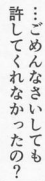 …ごめんなさいしても
許してくれなかったの?